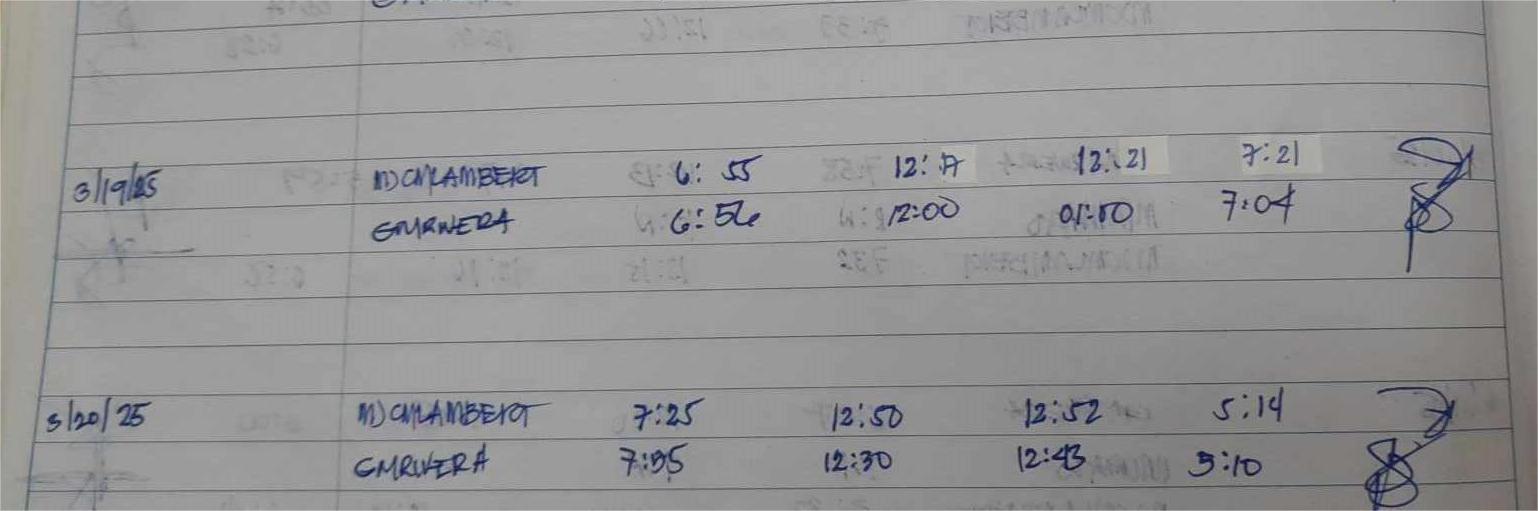 3/19/25 MJCMLAMBERT 6:55 12:17 12:21 7:21
GMRIVERA 6:56 12:00 01:00 7:04
3/20/25 MJCMLAMBERT 7:25 12:50 12:52 5:14
GMRIVERA 7:55 12:30 12:43 5:10